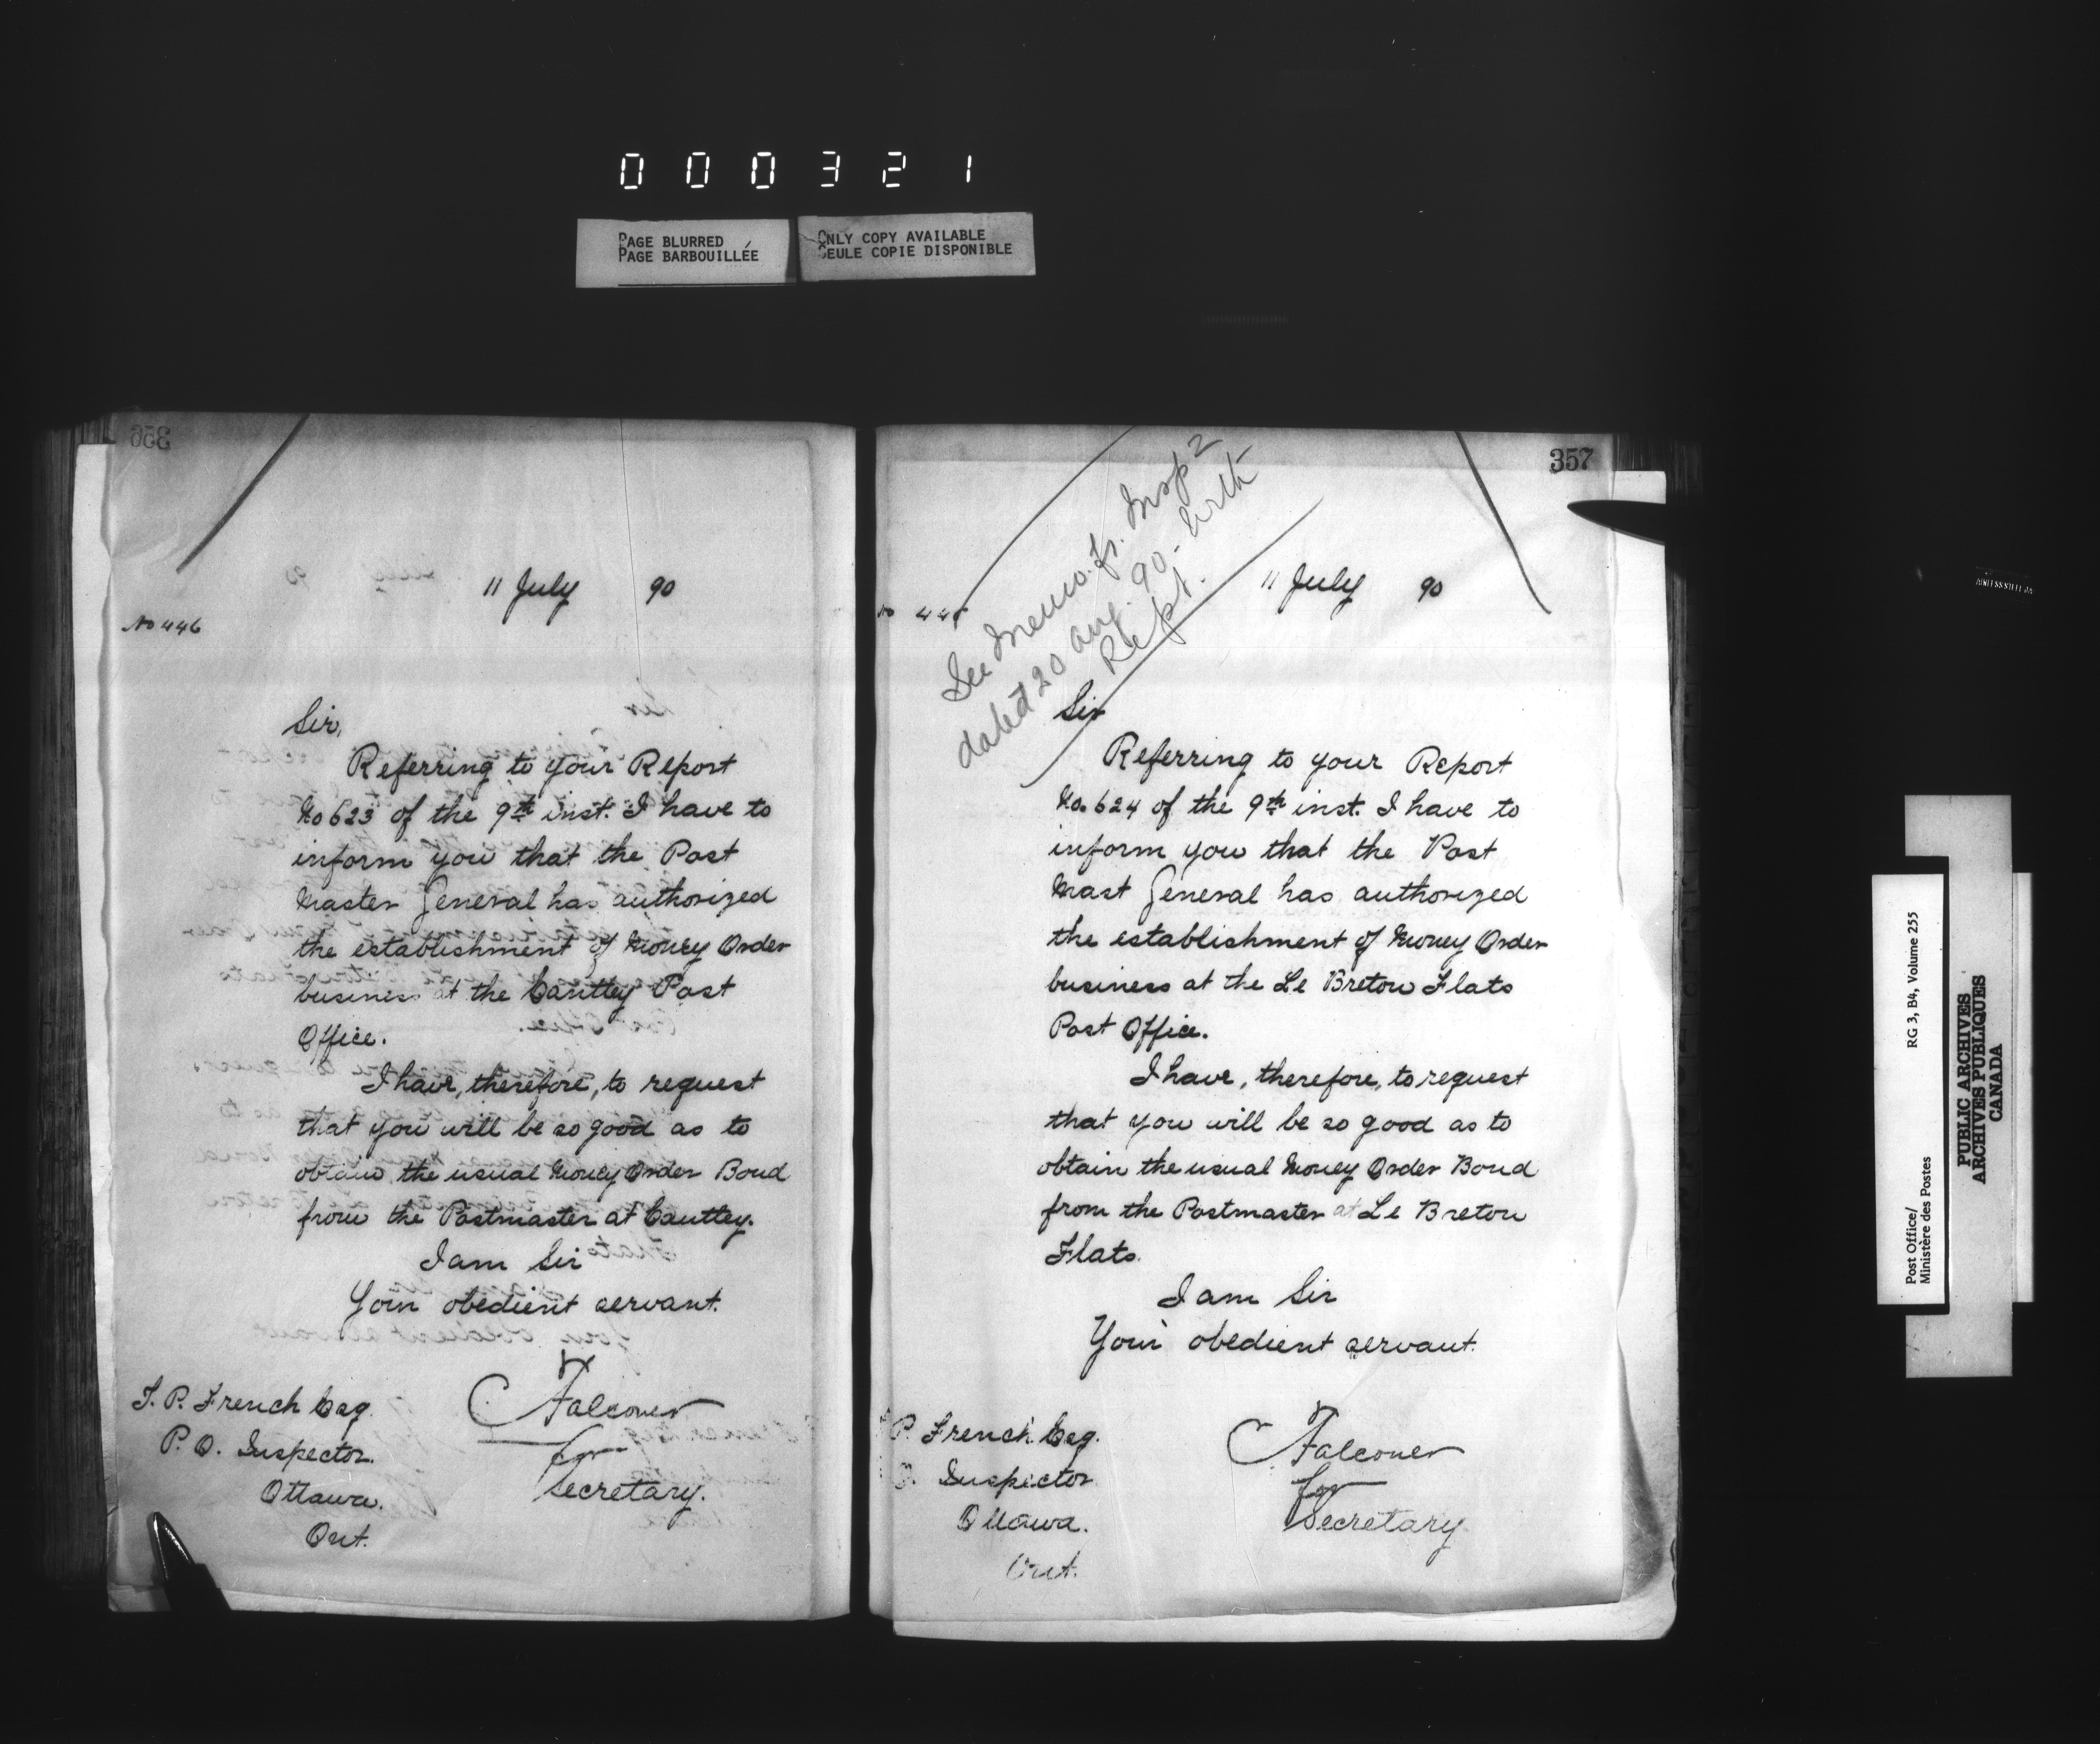 0 0 0 3 2 1
PAGE BLURRED
PAGE BARBOUILLÉE
ONLY COPY AVAILABLE
SEULE COPIE DISPONIBLE
356
11 July 90
No 446
Sir,
Referring to your Report
No 623 of the 9th inst. I have to
inform you that the Post
Master General has authorized
the establishment of Money Order
business at the Cantley Post
Office.
I have, therefore, to request
that you will be so good as to
obtain the usual Money Order Bond
from the Postmaster at Cantley.
I am Sir
Your obedient servant.
Falconer
for
Secretary.
T. P. French Esq.
P. O. Inspector.
Ottawa.
Ont.
357
See Memo. fr. Insp
dated 20 Aug. 90 - with
Rept.
11 July 90
No
Sir
Referring to your Report
No. 624 of the 9th inst. I have to
inform you that the Post
Mast General has authorized
the establishment of Money Order
business at the Le Breton Flats
Post Office.
I have, therefore, to request
that you will be so good as to
obtain the usual Money Order Bond
from the Postmaster at Le Breton
Flats.
I am Sir
Your obedient servant.
Falconer
for
Secretary
P. French Esq.
O. Inspector
Ottawa.
Ont.
Post Office/
Ministère des Postes
RG 3, B4, Volume 255
PUBLIC ARCHIVES
ARCHIVES PUBLIQUES
CANADA